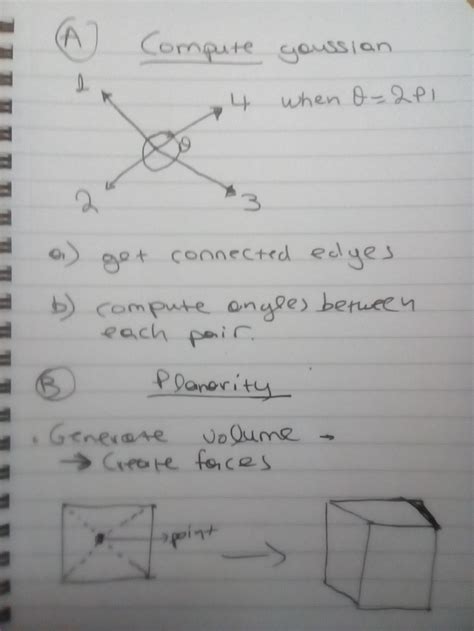 A Compute gaussian
1
4 when θ = 2PI
θ
2
3
a) get connected edges
b) compute angles between
each pair.
B Planarity
. Generate volume →
→ Create forces
→point